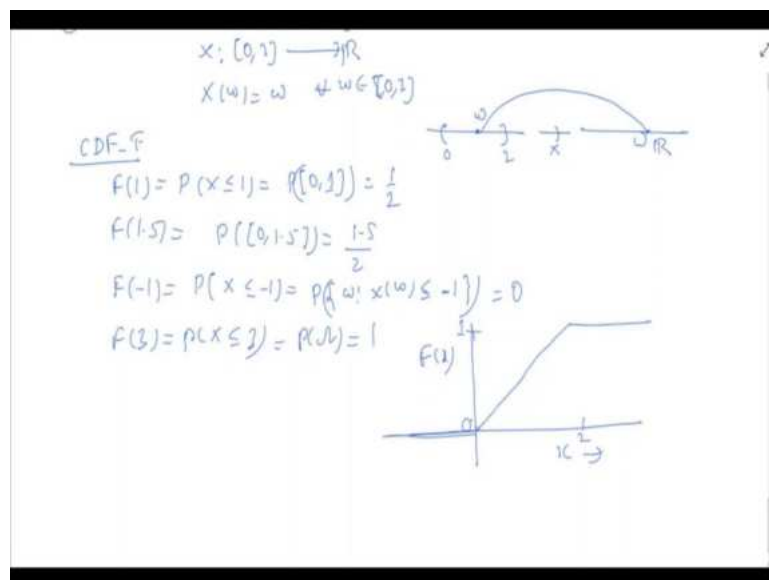 X: [0,2] → ℝ
X(ω) = ω ∀ ω ∈ [0,2]
ω
0 2 x ω ℝ
CDF-F
F(1) = P(X ≤ 1) = P([0,1]) = 1/2
F(1.5) = P([0,1.5]) = 1.5/2
F(-1) = P(X ≤ -1) = P({ω: X(ω) ≤ -1}) = 0
F(3) = P(X ≤ 3) = P(Ω) = 1
1
F(x)
0 2
x →